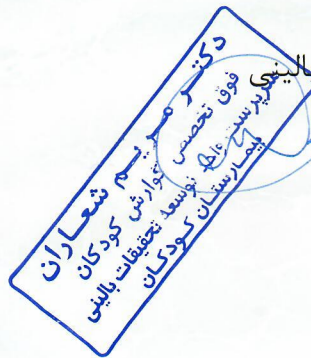 الینی
دکتر مریم شعاران
فوق تخصص گوارش کودکان
سرپرست واحد توسعه تحقیقات بالینی
بیمارستان کودکان